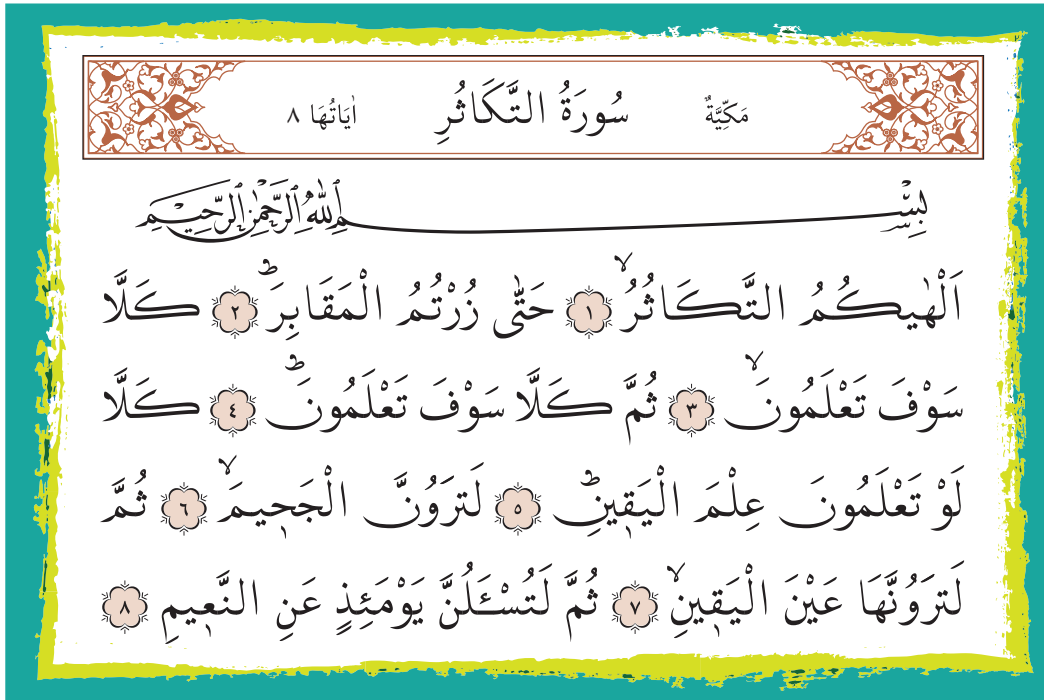 مَكِّيَّةٌ سُورَةُ التَّكَاثُرِ اٰيَاتُهَا ٨
بِسْمِ اللّٰهِ الرَّحْمٰنِ الرَّحٖيمِ
اَلْهٰيكُمُ التَّكَاثُرُۙ ١ حَتّٰى زُرْتُمُ الْمَقَابِرَۜ ٢ كَلَّا
سَوْفَ تَعْلَمُونَۙ ٣ ثُمَّ كَلَّا سَوْفَ تَعْلَمُونَۜ ٤ كَلَّا
لَوْ تَعْلَمُونَ عِلْمَ الْيَقٖينِۜ ٥ لَتَرَوُنَّ الْجَحٖيمَۙ ٦ ثُمَّ
لَتَرَوُنَّهَا عَيْنَ الْيَقٖينِۙ ٧ ثُمَّ لَتُسْـَٔلُنَّ يَوْمَئِذٍ عَنِ النَّعٖيمِ ٨